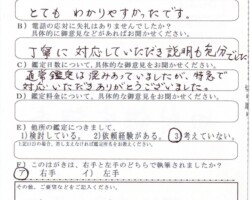 とても わかりやすかったです。
B）電話の応対に失礼はありませんでしたか？
具体的な御意見などがあればお聞かせください。
丁寧に対応していただき説明も充分でした
C）鑑定日数について、具体的な御意見をお聞かせください。
通常鑑定は混みあっていましたが、特急で
対応いただきありがとうございました。
D）鑑定料金について、具体的な御意見をお聞かせください。
E）他所の鑑定につきまして。
1）検討している。 2）依頼経験がある。 3）考えていない。
上記②の場合、差し支えなければ鑑定所名をお教えください。
E）このはがきは、右手と左手のどちらで執筆されましたか？
ア）右手 イ）左手
その他、ご要望などをご記入ください。